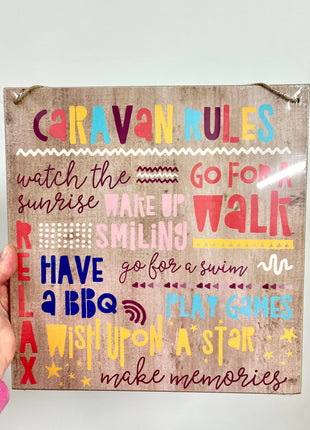 CARAVAN RULES
watch the sunrise
GO FOR A WALK
WAKE UP SMILING
RELAX
HAVE A BBQ
go for a swim
PLAY GAMES
WISH UPON A STAR
make memories